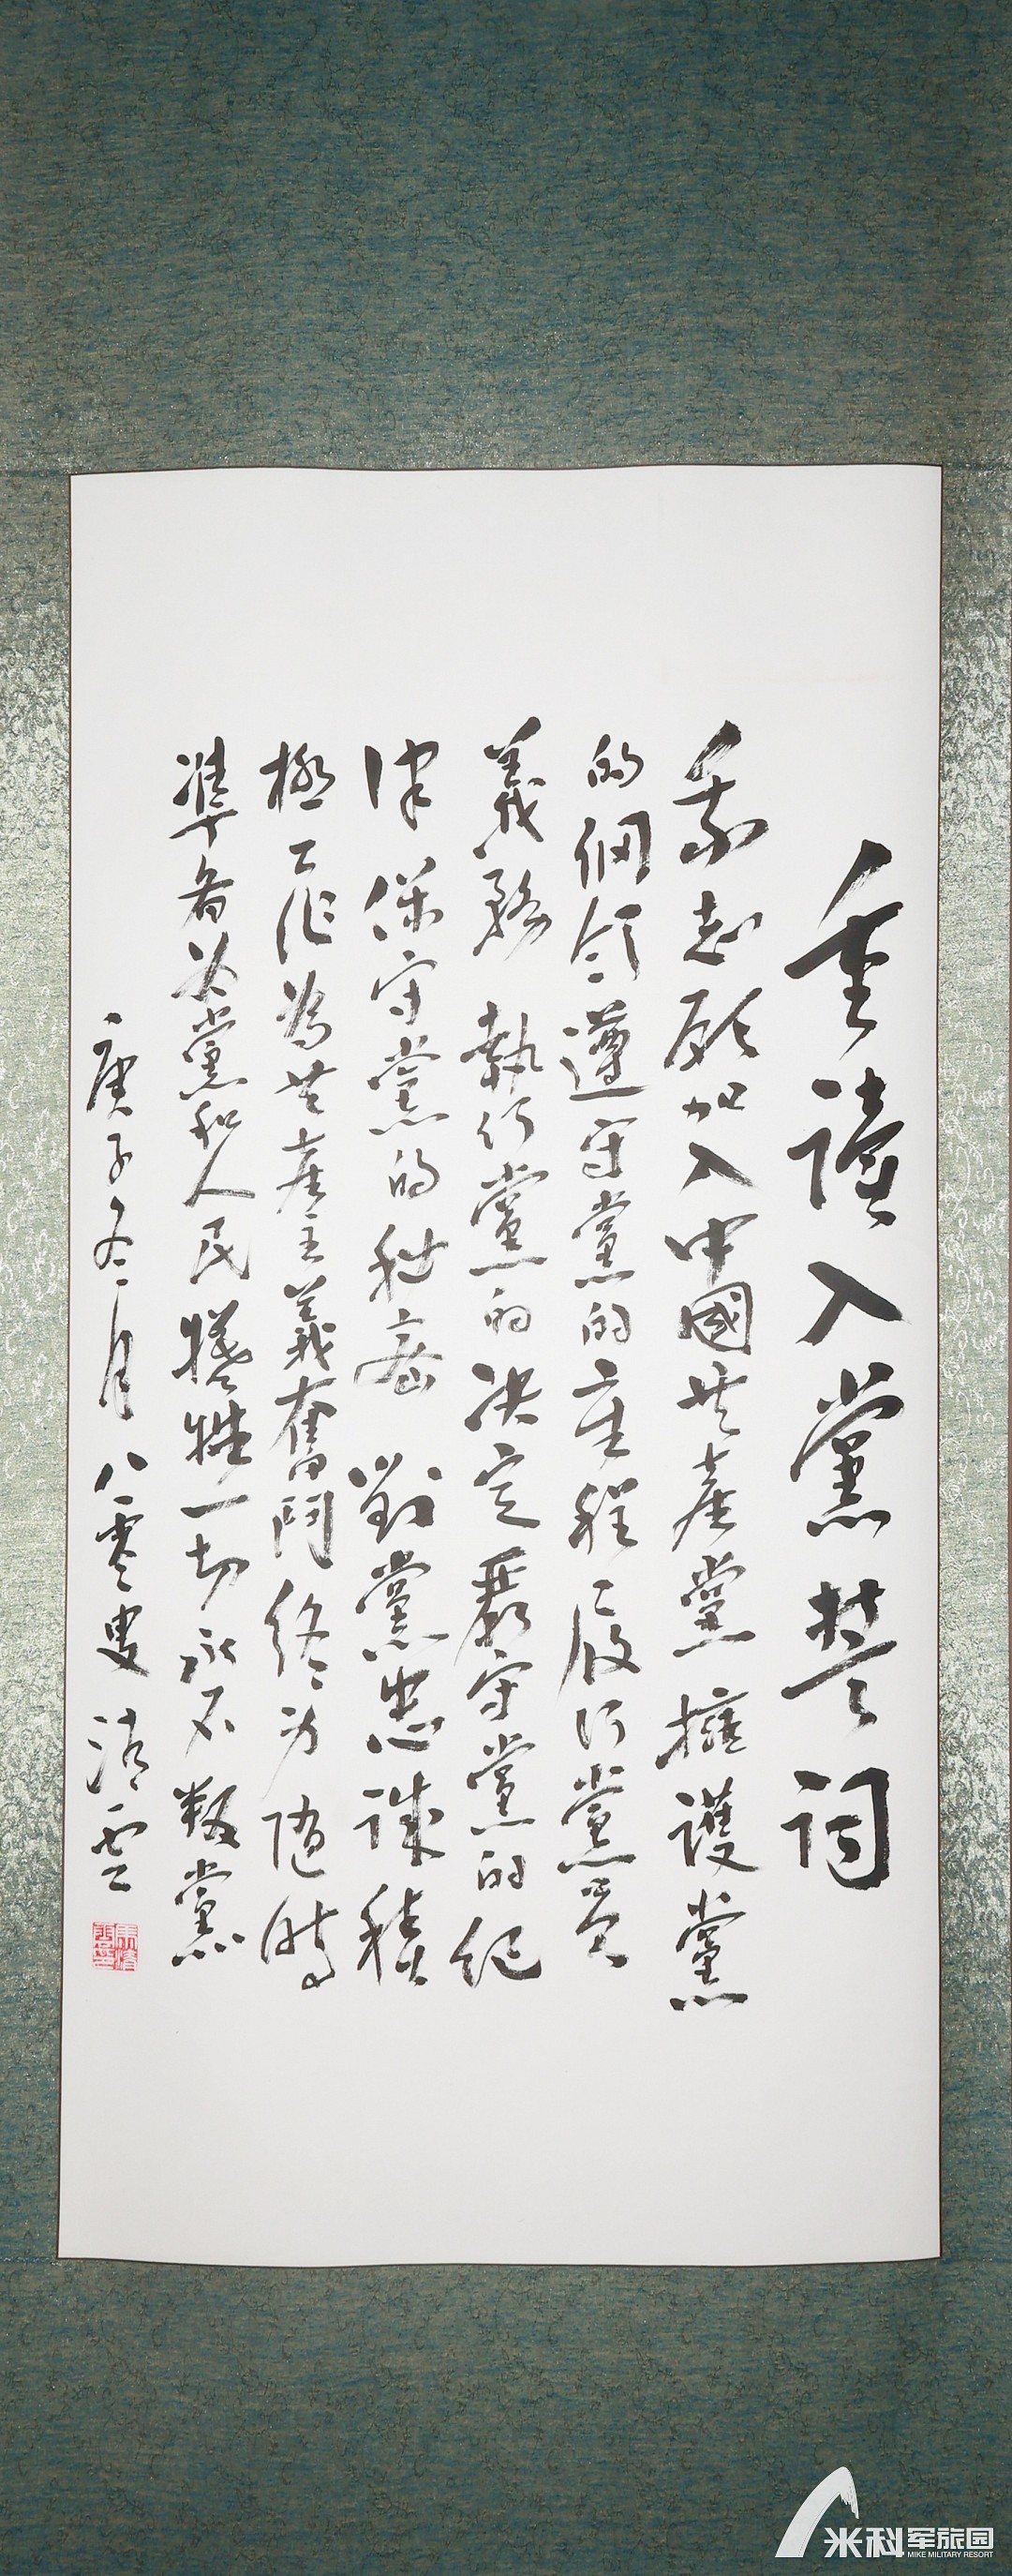 重讀入黨誓詞
我志願加入中國共產黨擁護黨
的綱領遵守黨的章程履行黨員
義務執行黨的决定嚴守黨的紀
律保守黨的秘密對黨忠誠積
極工作為共產主義奮鬥終身隨時
準備為黨和人民犧牲一切永不叛黨
庚子冬月八零叟清雲
米科军旅园
MIKE MILITARY RESORT